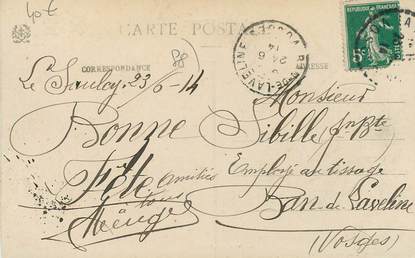 40 €
CARTE POSTALE
88
CORRESPONDANCE
ADRESSE
REPUBLIQUE FRANÇAISE
5c
BAN-DE-LAVELINE
24 6
14
Le Saulcy 23/6-14
Bonne
Fête
Amitiés
à tous
Monsieur
Sibille Jn Bte
Employé au tissage
Ban de Laveline
(Vosges)